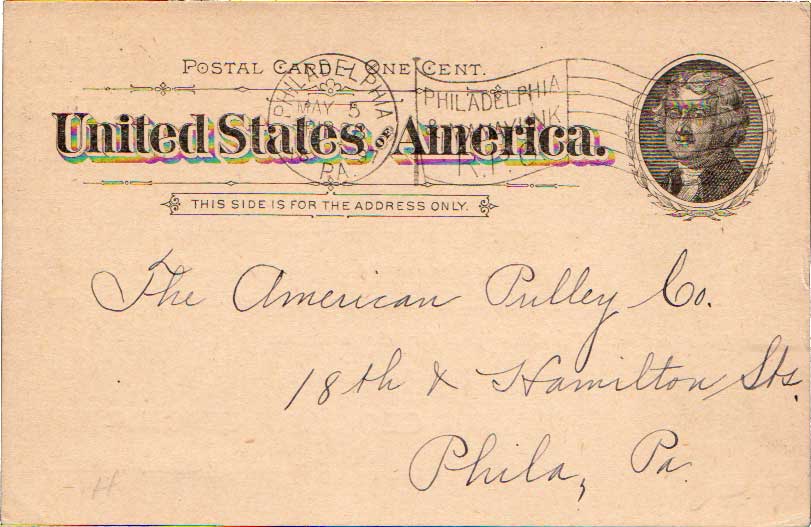 POSTAL CARD – ONE CENT.
United States of America.
THIS SIDE IS FOR THE ADDRESS ONLY.
PHILADELPHIA
MAY 5
PA.
PHILADELPHIA
The American Pulley Co.
18th & Hamilton Sts.
Phila, Pa.
H